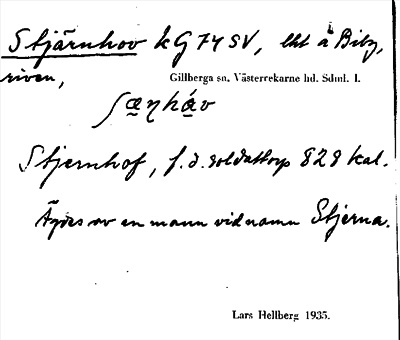 Stjärnhov kG 74 SV, lht å Biby,
riven,
Gillberga sn. Västerrekarne hd. Sdml. l.
ʃæ̱ŋhá̱v
Stjernhof, f.d. soldattorp 828 kal.
Äges av en mann vid namn Stjerna.
Lars Hellberg 1935.